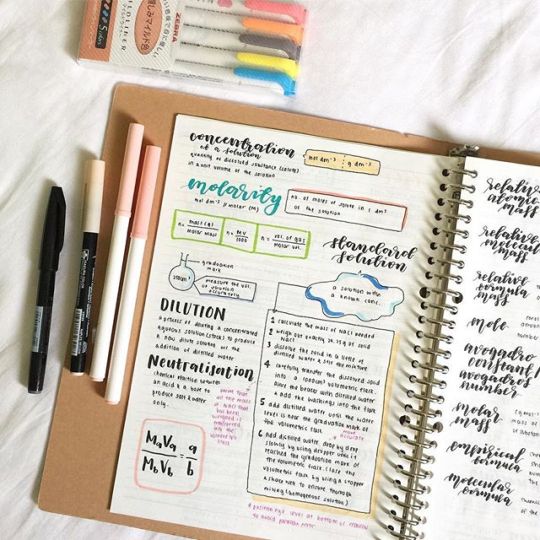 ZEBRA
concentration
of a solution
quantity of dissolved substance (solute)
a unit volume of the solution
mol dm⁻³
g dm⁻³
molarity
mol dm⁻³ // molar (M)
no. of moles of solute in 1 dm³
of the solution
n = mass (g) / molar mass
n = MV / 1000
n = vol. of gas / molar vol.
Standard
solution
a solution with
a known conc.
graduation
mark
measure the vol.
accurately
DILUTION
a process of diluting a concentrated
aqueous solution to produce
a more dilute solution w/ the
addition of distilled water
Neutralisation
chemical reaction between
an acid & a base to
produce salt & water
only.
MaVa / MbVb = a / b
1 calculate the mass of NaCl needed
2 weigh out exactly
3 dissolve the solid in a little of
distilled water & stir the mixture
4 carefully transfer the dissolved solid
into a volumetric flask
rinse the beaker with distilled water
& add the washings into the flask
5 add distilled water until the water
level is near the graduation mark of
the volumetric flask
more
accurate
6 add distilled water drop by drop
slowly by using dropper until it
reached the graduation mark of
the volumetric flask. close the
volumetric flask by using a stopper
& shake well to ensure thorough
mixing (homogeneous solution)
relative
atomic
mass
relative
molecular
mass
relative
formula
mass
mole
avogadro
constant/
avogadro's
number
molar
mass
empirical
formula
molecular
formula